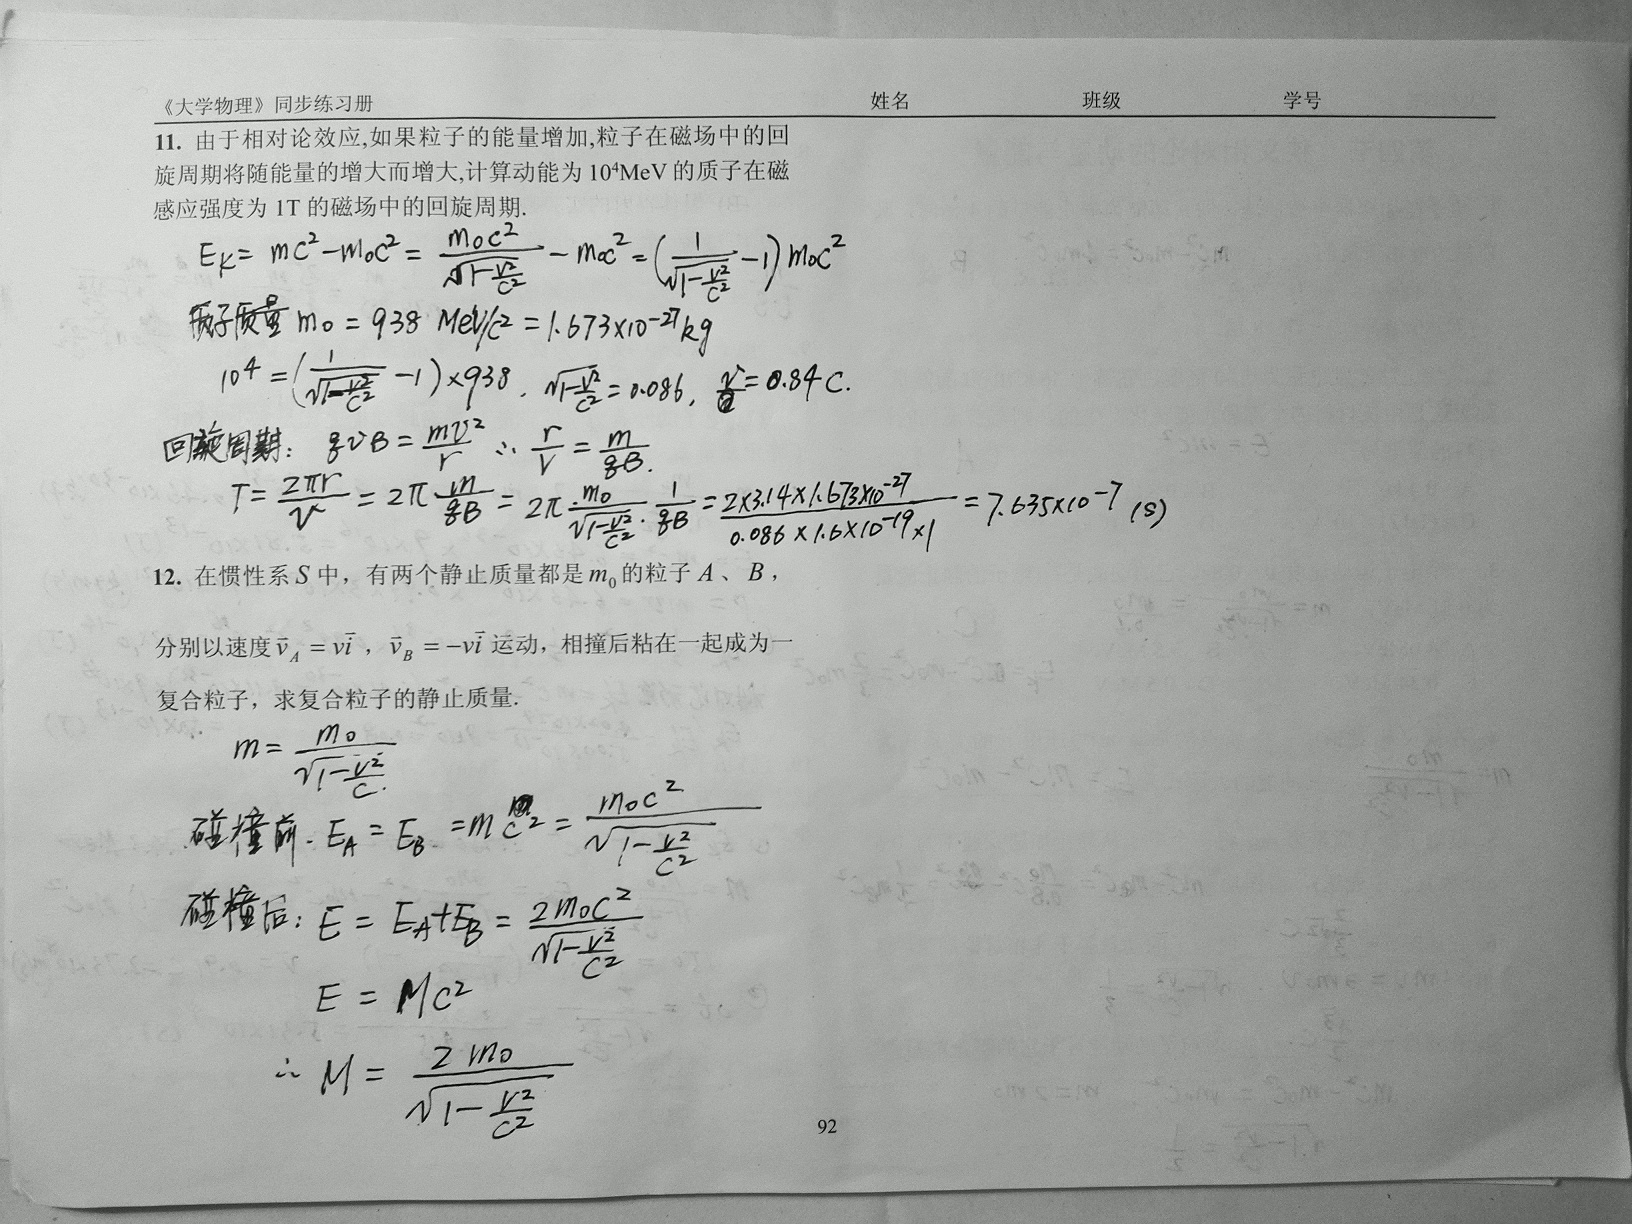 《大学物理》同步练习册 姓名 班级 学号
11. 由于相对论效应,如果粒子的能量增加,粒子在磁场中的回
旋周期将随能量的增大而增大,计算动能为 10⁴MeV 的质子在磁
感应强度为 1T 的磁场中的回旋周期.
E_K = mc² - m₀c² = m₀c²/√(1-v²/c²) - m₀c² = (1/√(1-v²/c²) - 1) m₀c²
质子质量 m₀ = 938 MeV/c² = 1.673×10⁻²⁷kg
10⁴ = (1/√(1-v²/c²) - 1)×938. √(1-v²/c²) = 0.086, v = 0.84C.
回旋周期: qvB = mv²/r ∴ r/v = m/qB.
T = 2πr/v = 2π m/qB = 2π m₀/√(1-v²/c²) · 1/qB = 2×3.14×1.673×10⁻²⁷/0.086×1.6×10⁻¹⁹×1 = 7.635×10⁻⁷ (s)
12. 在惯性系 S 中，有两个静止质量都是 m₀ 的粒子 A 、 B ，
分别以速度 v̄_A = vī ， v̄_B = -vī 运动，相撞后粘在一起成为一
复合粒子，求复合粒子的静止质量.
m = m₀/√(1-v²/c²)
碰撞前. E_A = E_B = mc² = m₀c²/√(1-v²/c²)
碰撞后: E = E_A+E_B = 2m₀c²/√(1-v²/c²)
E = Mc²
∴ M = 2m₀/√(1-v²/c²)
92